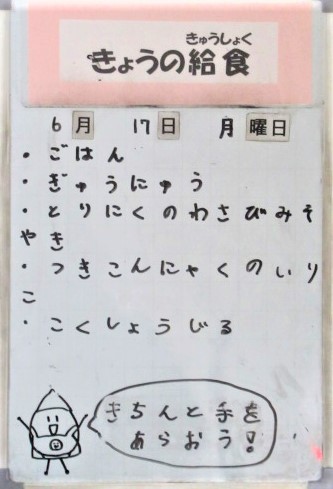 きゅうしょく
きょうの給食
6月 17日 月曜日
・ごはん
・ぎゅうにゅう
・とりにくのわさびみそ
やき
・つきこんにゃくのいり
こ
・こくしょうじる
きちんと手を
あらおう!